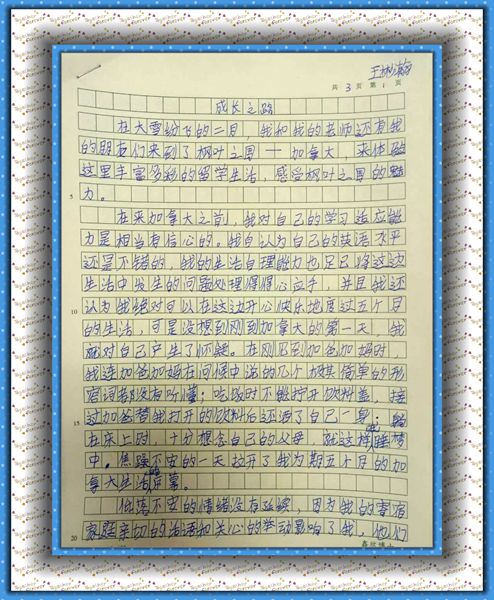 王
共 3 页 第 1 页
成长之路
在大雪纷飞的二月,我和我的老师还有我
的朋友们来到了枫叶之国——加拿大,来体验
这里丰富多彩的留学生活,感受枫叶之国的魅
力。
5
在来加拿大之前,我对自己的学习适应能
力是相当有信心的。我自认为自己的英语水平
还是不错的,我的生活自理能力也足已将这边
生活中发生的问题处理得得心应手,并且我还
认为我绝对可以在这边开心快乐地度过五个月
10
的生活,可是没想到刚到加拿大的第一天,我
就对自己产生了怀疑。在刚见到加爸加妈时,
我连加爸加妈在问候中说的几个极其简单的形
容词都没有听懂;吃饭时不能拧开饮料盖,接
过加爸替我打开的饮料后还洒了自己一身;躺
15
在床上时,十分想念自己的父母,就这样睡梦
中。焦躁不安的一天拉开了我为期五个月的加
拿大生活的启幕。
低落不安的情绪没有延续,因为我的寄宿
家庭亲切的话语和关心的举动影响了我,他们
20